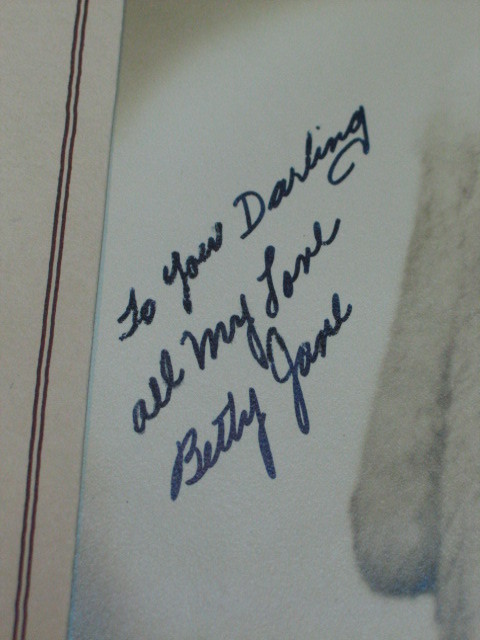 To You Darling
all My Love
Betty Jane